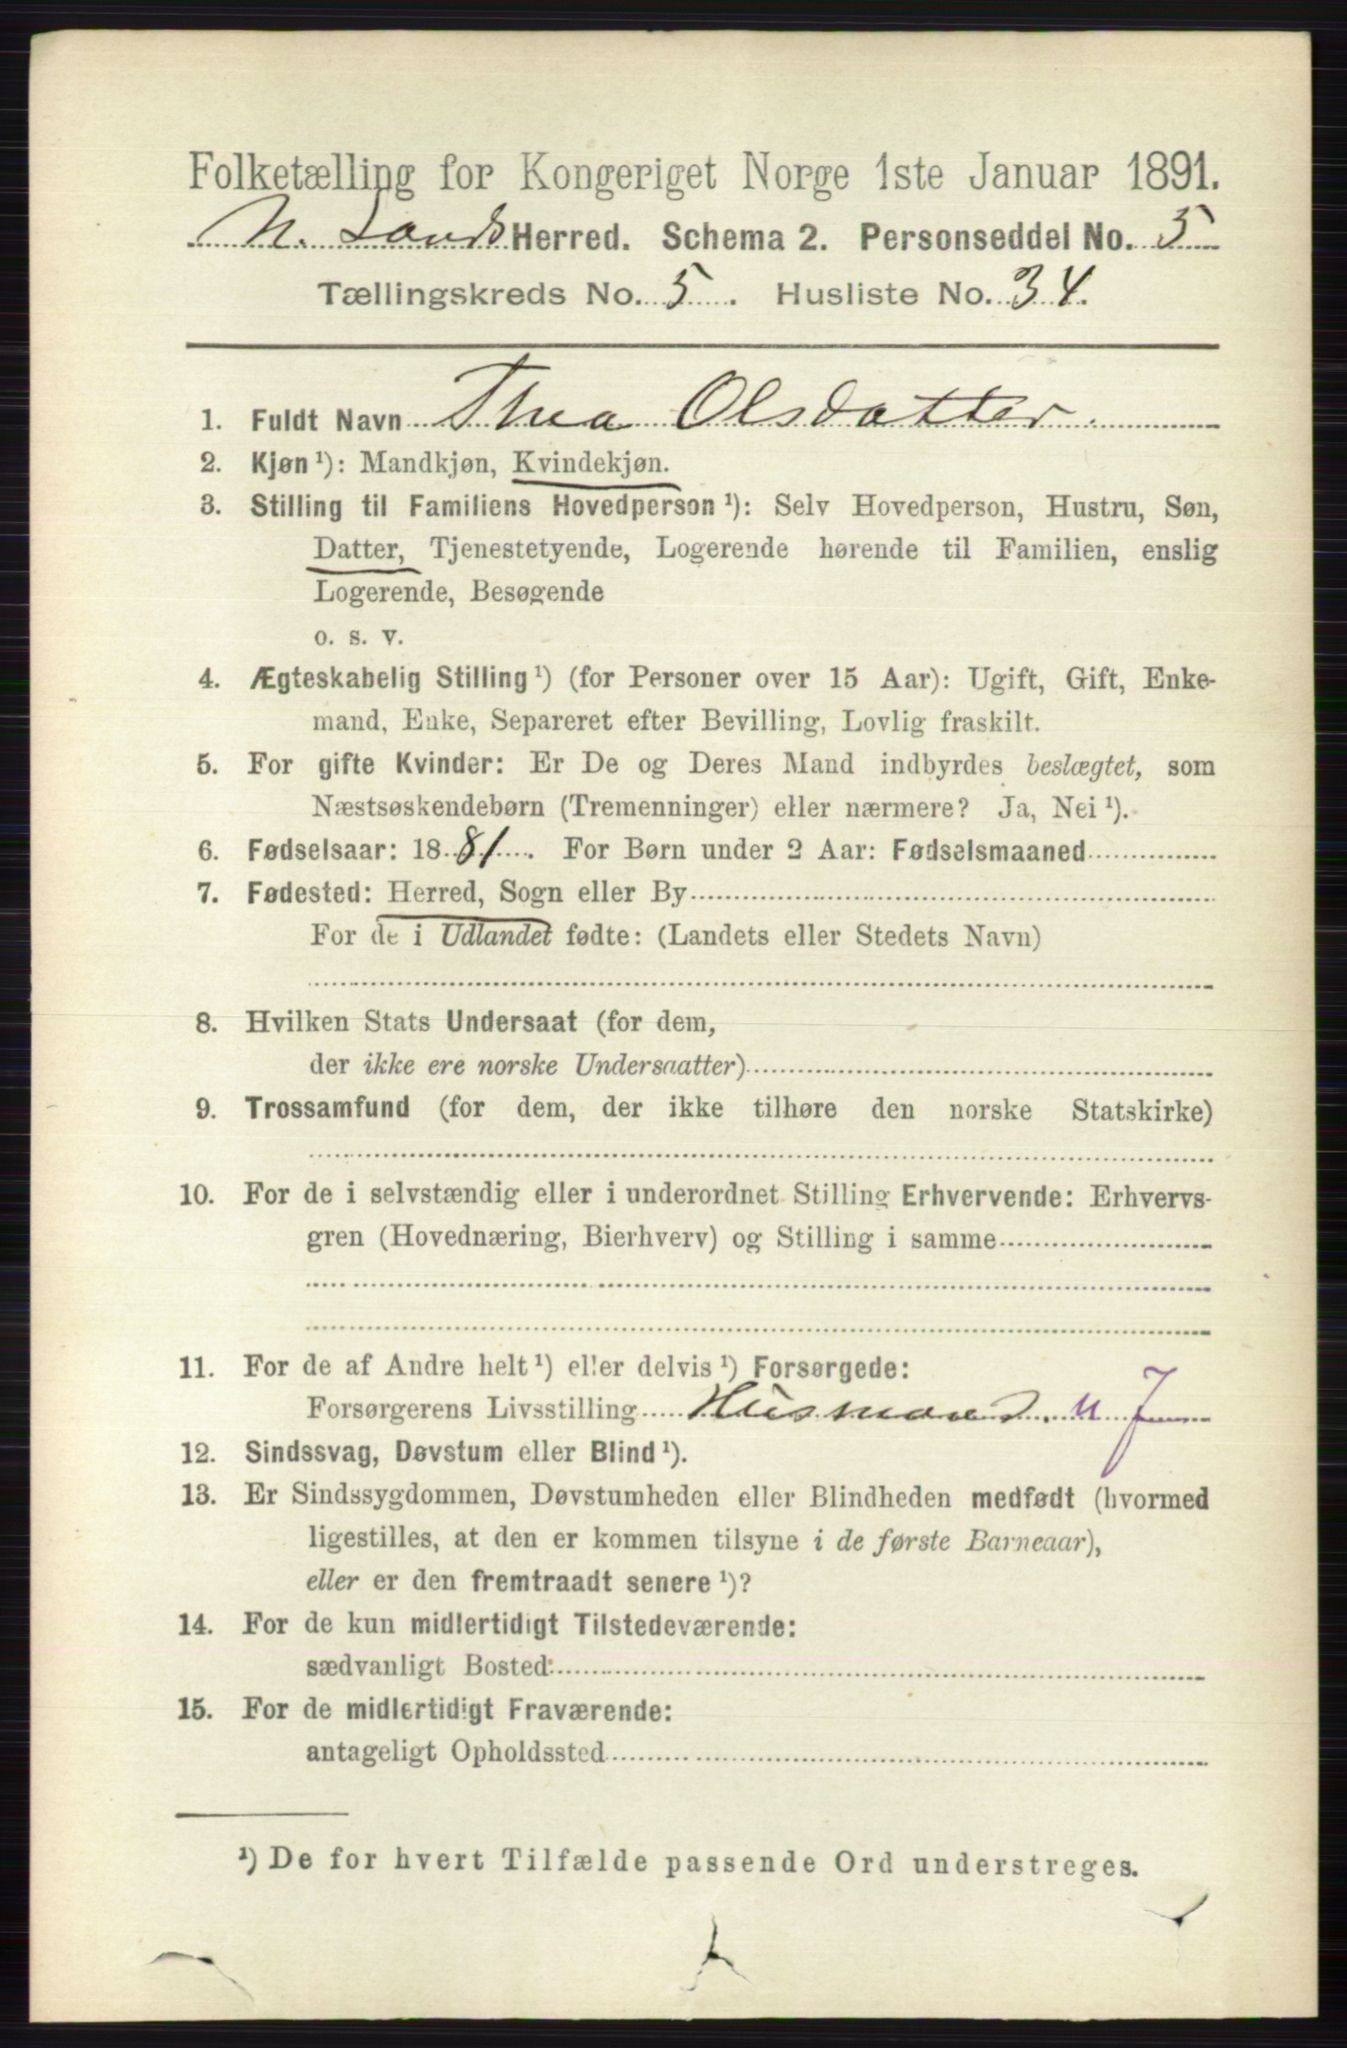 Folketælling for Kongeriget Norge 1ste Januar 1891.
N. Lands Herred. Schema 2. Personseddel No. 5
Tællingskreds No. 5. Husliste No. 34.
1. Fuldt Navn Thea Olsdatter.
2. Kjøn ¹): Mandkjøn, Kvindekjøn.
3. Stilling til Familiens Hovedperson ¹): Selv Hovedperson, Hustru, Søn,
Datter, Tjenestetyende, Logerende hørende til Familien, enslig
Logerende, Besøgende
o. s. v.
4. Ægteskabelig Stilling ¹) (for Personer over 15 Aar): Ugift, Gift, Enke-
mand, Enke, Separeret efter Bevilling, Lovlig fraskilt.
5. For gifte Kvinder: Er De og Deres Mand indbyrdes beslægtet, som
Næstsøskendebørn (Tremenninger) eller nærmere? Ja, Nei ¹).
6. Fødselsaar: 1881. For Børn under 2 Aar: Fødselsmaaned
7. Fødested: Herred, Sogn eller By
For de i Udlandet fødte: (Landets eller Stedets Navn)
8. Hvilken Stats Undersaat (for dem,
der ikke ere norske Undersaatter)
9. Trossamfund (for dem, der ikke tilhøre den norske Statskirke)
10. For de i selvstændig eller i underordnet Stilling Erhvervende: Erhvervs-
gren (Hovednæring, Bierhverv) og Stilling i samme
11. For de af Andre helt ¹) eller delvis ¹) Forsørgede:
Forsørgerens Livsstilling Husmand. m J
12. Sindssvag, Døvstum eller Blind ¹).
13. Er Sindssygdommen, Døvstumheden eller Blindheden medfødt (hvormed
ligestilles, at den er kommen tilsyne i de første Barneaar),
eller er den fremtraadt senere ¹)?
14. For de kun midlertidigt Tilstedeværende:
sædvanligt Bosted:
15. For de midlertidigt Fraværende:
antageligt Opholdssted
¹) De for hvert Tilfælde passende Ord understreges.